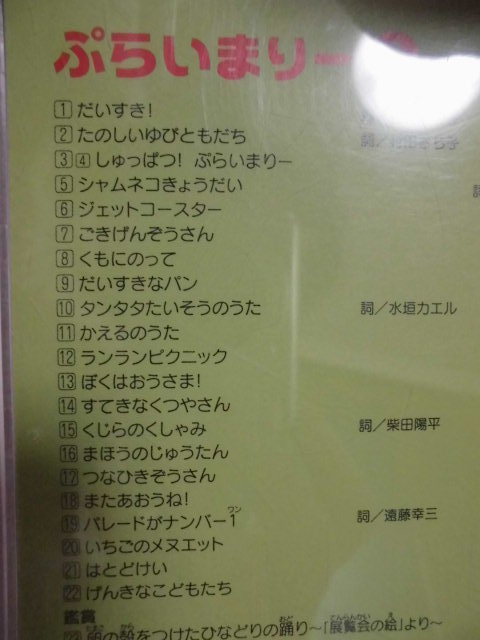 ぷらいまりー
1 だいすき!
2 たのしいゆびともだち
3 4 しゅっぱつ! ぷらいまりー
5 シャムネコきょうだい
6 ジェットコースター
7 ごきげんぞうさん
8 くもにのって
9 だいすきなパン
10 タンタタたいそうのうた 詞/水垣カエル
11 かえるのうた
12 ランランピクニック
13 ぼくはおうさま!
14 すてきなくつやさん
15 くじらのくしゃみ 詞/柴田陽平
16 まほうのじゅうたん
17 つなひきぞうさん
18 またあおうね!
19 パレードがナンバー1 ワン 詞/遠藤幸三
20 いちごのメヌエット
21 はとどけい
22 げんきなこどもたち
鑑賞
23 卵の殻をつけたひなどりの踊り~「展覧会の絵」より~